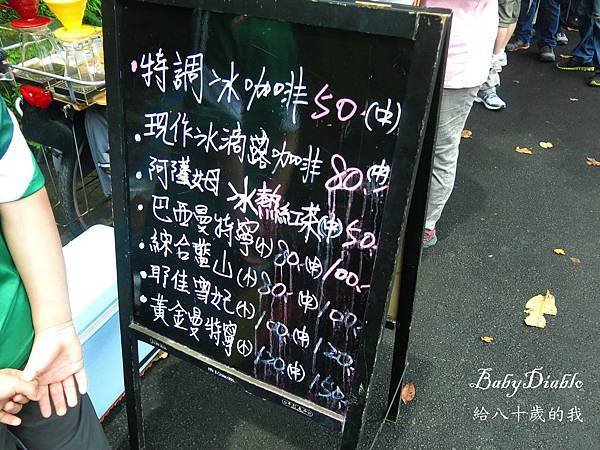 ·特調冰咖啡50(中)
·現作冰滴露咖啡80(中)
·阿薩姆 冰熱紅茶(中)50.
·巴西曼特寧(小)80.(中)100.
·綜合藍山(小)80.(中)100.
·耶佳雪妃(小)100.(中)120.
·黃金曼特寧(小)120(中)150.
BabyDiablo
給八十歲的我